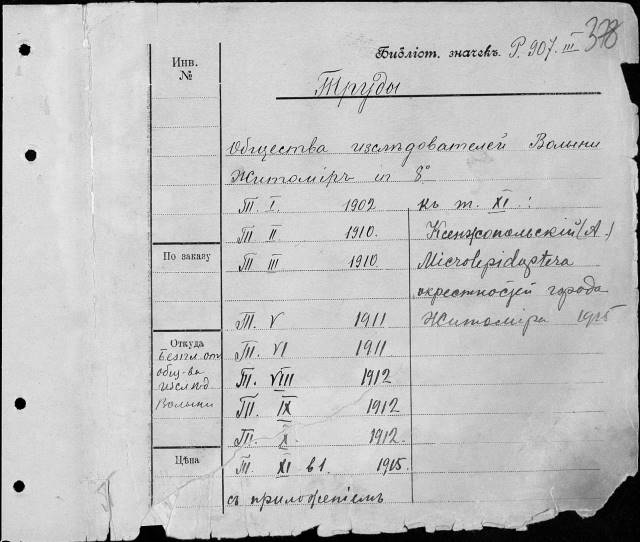 Библіот. значекъ P. 907. III 378
Инв.
№
Труды
Общества изслѣдователей Волыни
Житоміръ in 8°
Т. I. 1902
Т. II 1910.
Т. III 1910
Т. V 1911
Т. VI 1911
Т. VIII 1912
Т. IX 1912
Т. X. 1912.
Т. XI в 1. 1915.
съ приложеніемъ
къ т. XI. :
Ксенжопольскій (А.)
Microlepidoptera
окрестностей города
Житоміра 1915
По заказу
Откуда
Безпл. от
общ-ва
изслѣд
Волыни
Цѣна